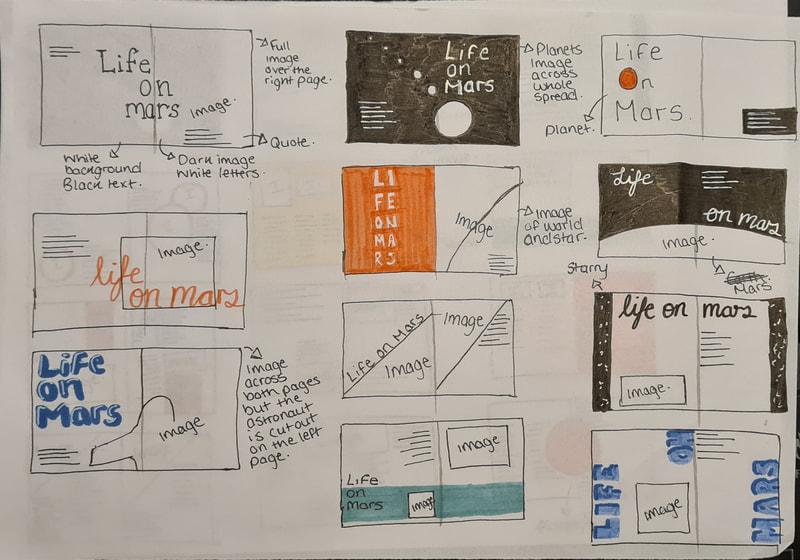 Life
on
mars
Image.
Full
image
over the
right page.
Quote.
White
background
Black text.
Dark image
White letters.
Life
on
Mars
Planets
Image
across
whole
spread.
Life
on
Mars.
Planet.
life
on mars
Image.
LI
FE
ON
MA
RS
Image
Image
of world
and star.
Life
on mars
Image.
Mars
Life
on
Mars
Image
Image
across
both pages
but the
astronaut
is cutout
on the left
page.
Life on Mars
Image
Image
Starry
life on mars
Image.
Life
on
Mars
Image
Image
LIFE
ON
MARS
Image